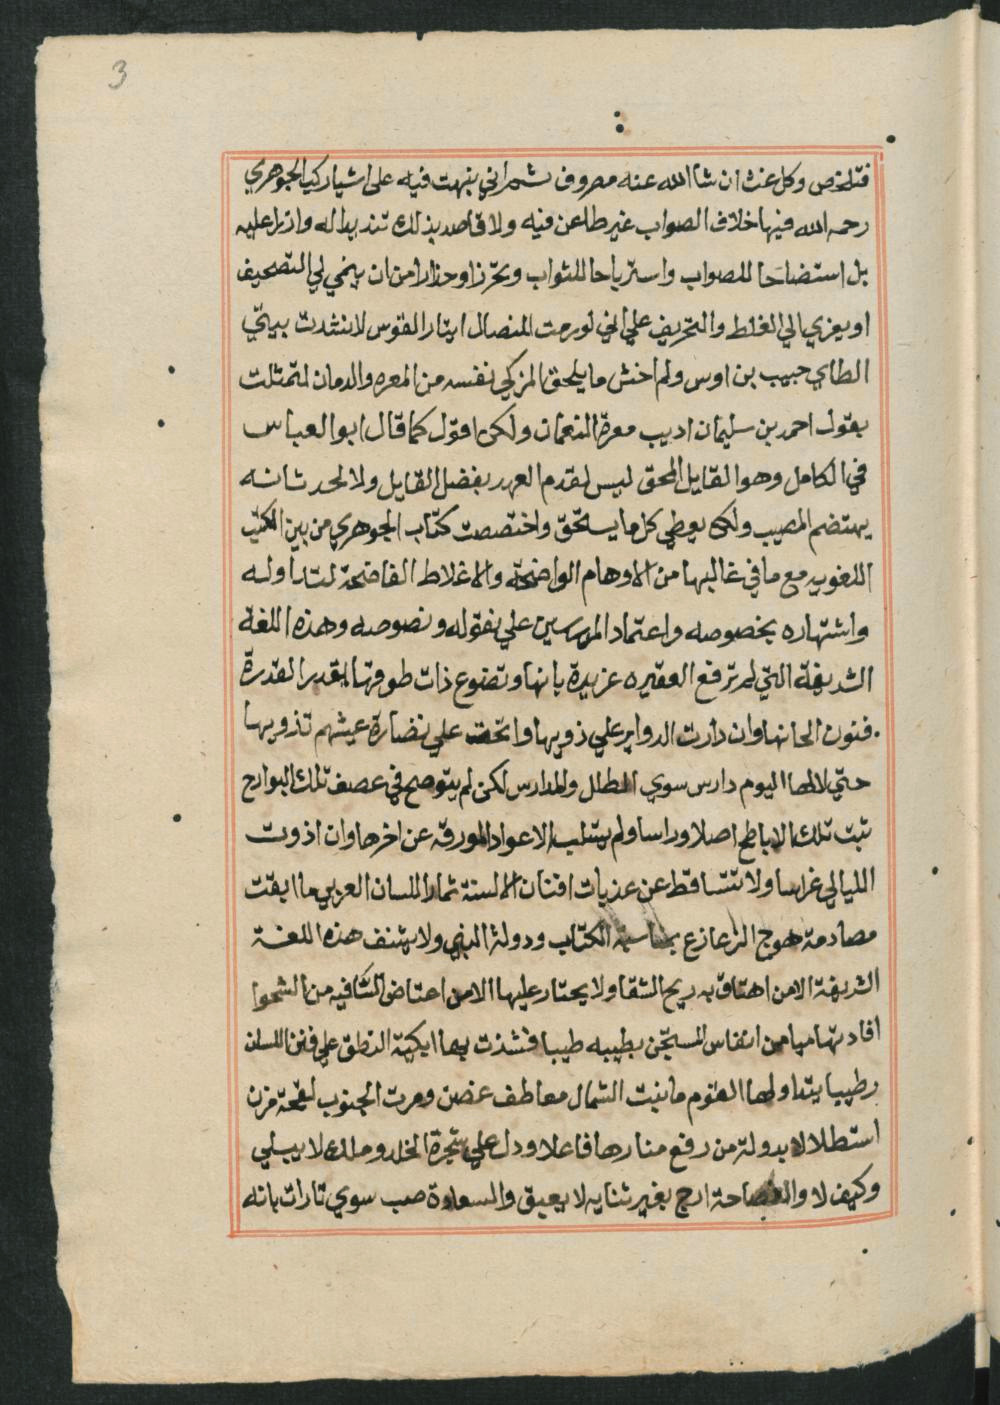 3
فتلخص وكل غث ان شا الله عنه مصروف ثم اني نبهت فيه على اشيا ركب الجوهري
رحمه الله فيها خلاف الصواب غير طاعن فيه ولا قاصد بذلك تنديدا له وازرا عليه
بل استضاحا للصواب واسترباحا للثواب وتحرزا وحذارا من ان ينمي لي التصحيف
او يعزي الي الغلط والتحريف علي اني لو رمت للنضال ايتار القوس لانشدت بيتي
الطاي حبيب بن اوس ولم اخش ما يلحق المزكي نفسه من المعره والدمان لتمثلت
بقول احمد بن سليمان اديب معرة النعمان ولكن اقول كما قال ابو العباس
في الكامل وهو القايل المحق ليس لقدم العهد يفضل القايل ولا لحدثانه
يهتضم المصيب ولكن يعطي كل ما يستحق واختصصت كتاب الجوهري من بين الكتب
اللغويه مع ما في غالبها من الاوهام الواضحة والاغلاط الفاضحة لتداوله
واشتهاره بخصوصه واعتماد المدرسين علي نقوله ونصوصه وهذه اللغة
الشريفة التي لم ترفع العقيره عزيدة بانها وتضوع ذات طوقها بقدر القدرة
فنون الحانها وان دارت الدواير علي ذويها واتحت علي نضارة عيشهم تذويها
حتي لا لها اليوم دارس سوي الطلل والمدارس لكن لم يتوصح في عصف تلك البوارح
نبت تلك الاباطح اصلا وراسا ولم تستلب الاعواد المورقه عن اخرها وان اذوت
الليالي غراسا ولا تتساقط عن عذبات افنان الالسنة ثمار اللسان العربي ما اتقت
مصادمة هوج الزعازع بمناسبة الكتاب ودولة النبي ولا يشنف هذه اللغة
الشريفة الا من اهتاف به ريح الشقا ولا يختار عليها الا من اعتاض السافيه من الشحوا
افادتها ميامن انفاس المستجن بطيبه طيبا فشذت بها ايكية النطق علي فنن اللسان
رطيبا يتداولها القوم ما ثنت الشمال معاطف غصن ومرت الجنوب لقحة مزن
استظلالا بدولة من رفع منارها فاعلا ودل علي شجرة الخلد وملك لا يبلي
وكيف لا والفصاحة ارج بغير ثنايه لا يعبق والسعادة صب سوي تراب بابه